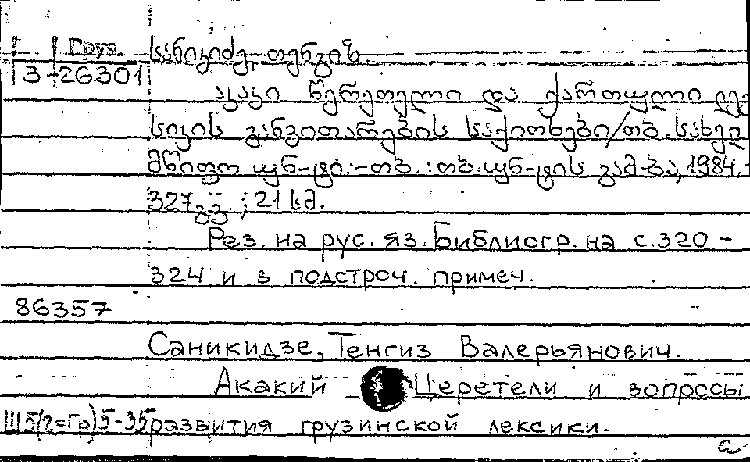 Груз.
3-26301
სანიკიძე, თენგიზ.
აკაკი წერეთელი და ქართული ლე
სიკის განვითარების საქითხები/თბ. სახელ
მწიფო უნ-ტი.-თბ.:თბ.უნ-ტის გამ-ბა, 1984.
327 გვ ; 21 სმ.
Рез. на рус. яз. Библиогр. на с. 320 -
324 и в подстроч. примеч.
86357
Саникидзе, Тенгиз Валерьянович.
Акакий Церетели и вопросы
Ш5(2=Гр)5-35 развития грузинской лексики.